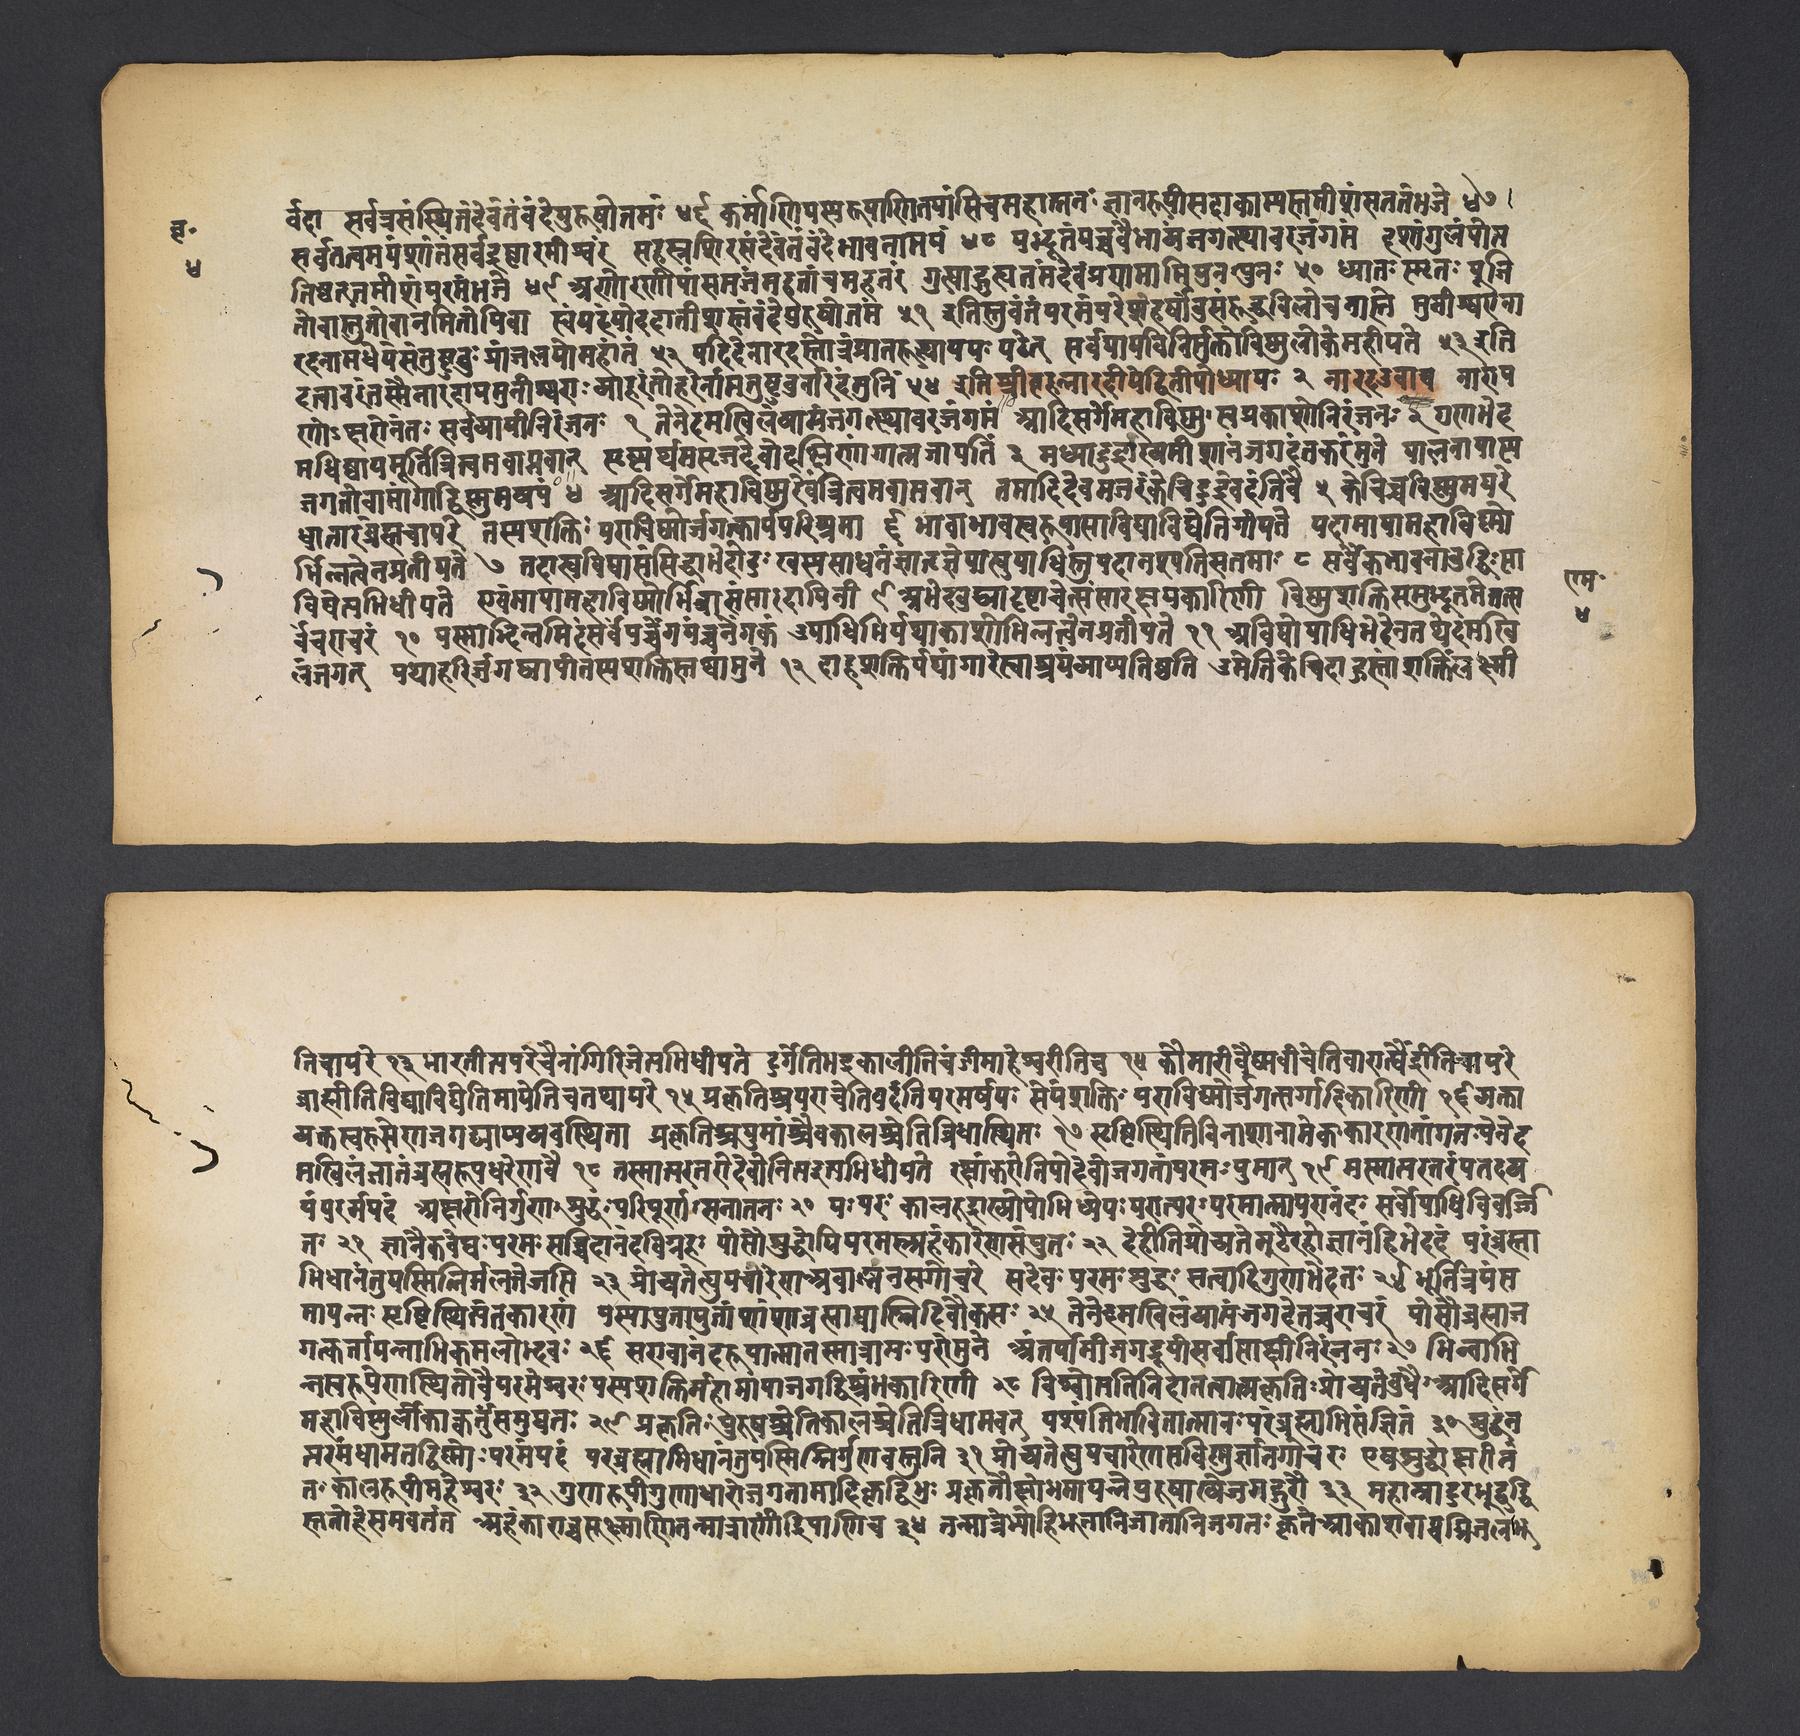 बृ॰
४
र्वदा सर्वत्रसंस्थितंदेवंतंवंदेपुरुषोत्तमं ४६ कर्माणियस्यरूपाणितपांसिचमहात्मनः ज्ञानरूपीसदाकाम्यस्तमीशंसततंभजे ४७।
सर्वतत्वमयंशांतंसर्वदृष्टारमीश्वरं सहस्रशिरसंदेवंतंवंदेभावनामयं ४८ यद्भूतंयच्चवैभाव्यंजगत्स्थावरजंगमं दशांगुलंयोत्य
तिष्ठत्तमीशंपरमंभजे ४९ अणोरणीयांसमजंमहतांचमहत्तरं गुह्याद्गुह्यतमंदेवंप्रणमामिपुनःपुनः ५० ध्यातः स्मृतः पूजि
तोवास्तुतोवानमितोपिवा स्वंपदंयोददातीशस्तंवंदेपुरुषोत्तमं ५१ इतिस्तुवंतंपरमंपरेशंहर्षांबुसंरुद्धविलोचनास्ते मुनीश्वरावै
रहनामधेयंसंतुष्टुवुः प्रांजलयोमहांतं ५२ यदिदंनारदस्तोत्रंप्रातरुत्थाययः पठेत् सर्वपापविनिर्मुक्तोविष्णुलोकेमहीयते ५३ इति
दत्वावरंतस्मैनारदायमुनीश्वराः आहरंतोहरेर्नामतुष्टुवुर्नारदंमुनिं ५४ इतिश्रीबृहन्नारदीयेद्वितीयोध्यायः २ नारदउवाच नाराय
णोऽक्षरोनंतः सर्वव्यापीनिरंजनः १ तेनेदमखिलंव्याप्तंजगत्स्थावरजंगमं आदिसर्गेमहाविष्णुः स्वप्रकाशोनिरंजनः २ गुणभेद
मधिष्ठायमूर्तित्रित्वमवाप्तवान् सृष्ट्यर्थमसृजद्देवोदक्षिणांगात्प्रजापतिं ३ मध्याद्रुद्राख्यमीशानंजगदंतकरंमुने पालनायास्य
जगतोवामांगाद्विष्णुमव्ययं ४ आदिसर्गेमहाविष्णुरेवंत्रित्वमवाप्तवान् तमादिदेवमजरंकेचिद्रुद्रंवदंतिवै ५ केचिच्चविष्णुमपरे
धातारंब्रह्मचापरे तस्यशक्तिः पराविष्णोर्जगत्कार्यपरिश्रमा ६ भावाभावस्वरूपासाविद्याविद्येतिगीयते यदामायामहाविष्णो
र्भिन्नत्वेनप्रतीयते ७ तदास्यविद्यासंसिद्धाभेदोदुः खस्यसाधनंज्ञातृज्ञेयाद्युपाधिस्तुयदानश्यतिसत्तमाः ८ सर्वैकभावनाबुद्धिः सा
विद्येत्यभिधीयते एवंमायामहाविष्णोर्भिन्नासंसारदायिनी ९ अभेदबुद्ध्यादृष्टाचेत्संसारक्षयकारिणी विष्णुशक्तिसमुद्भूतमेतत्स
र्वंचराचरं १० यस्माद्भिन्नमिदंसर्वंयच्चेंगंयच्चनेंगकं उपाधिभिर्यथाकाशोभिन्नत्वेनप्रतीयते ११ अविद्योपाधिभेदेनतथेदमखि
लंजगत् यथाहरिर्जगद्व्यापीतस्यशक्तिस्तथामुने १२ दाहशक्तिर्यथांगारेस्वाश्रयंव्याप्यतिष्ठति उमेतिकेचिदाहुस्तांशक्तिंलक्ष्मी
राम॰
४
तिचापरे १३ भारतीत्यपरेचैनांगिरिजेत्यभिधीयते दुर्गेतिभद्रकालीतिचंडीमाहेश्वरीतिच १४ कौमारीवैष्णवीचेतिवाराह्यैंद्रीतिचापरे
ब्राह्मीतिविद्याविद्येतिमायेतिचतथापरे १५ प्रकृतिश्चपराचेतिवदंतिपरमर्षयः सेयंशक्तिः पराविष्णोर्जगत्सर्गादिकारिणी १६ व्यक्ता
व्यक्तस्वरूपेणजगद्व्याप्यव्यवस्थिता प्रकृतिश्चपुमांश्चैवकालश्चेतित्रिधास्थितः १७ सृष्टिस्थितिविनाशानामेकःकारणतांगतः येनेद
मखिलंजातंब्रह्मरूपधरेणवै १८ तस्मात्परतरोदेवोनित्यइत्यभिधीयते रक्षांकरोतियोदेवोजगतांपरमः पुमान् १९ तस्मात्परतरंयत्तदव्य
यंपरमंपदं अक्षरोनिर्गुणः शुद्धः परिपूर्णः सनातनः २० यः परः कालरुद्राख्योयोगिध्येयः परात्परः परमात्मापरानंदः सर्वोपाधिविवर्जि
तः २१ ज्ञानैकवेद्यः परमः सच्चिदानंदविग्रहः योसौशुद्धोपिपरमस्त्वहंकारेणसंयुतः २२ देहीतिप्रोच्यतेमूढैरहोज्ञानंहिभेददं परंब्रह्मा
भिधानंतुयस्मिन्निर्मलतेजसि २३ प्रोच्यतेत्युपचारेणअवाङ्मनसगोचरे सदेवः परमः शुद्धः सत्वादिगुणभेदतः २४ मूर्तित्रयंस
मापन्नः सृष्टिस्थित्यंतकारणं
गत्कर्तायन्नाभिकमलोद्भवः २६ सएवानंदरूपात्मातस्मान्नास्त्यपरोमुने अंतर्यामीजगद्रूपीसर्वसाक्षीनिरंजनः २७ भिन्नाभि
न्नस्वरूपेणस्थितोवैपरमेश्वरः यस्यशक्तिर्महामायाजगद्विश्रंभकारिणी २८ विश्वोत्पत्तिनिदानत्वात्प्रकृतिः प्रोच्यतेबुधैः आदिसर्गे
महाविष्णुर्लोकान्कर्तुंसमुद्यतः २९ प्रकृतिः पुरुषश्चेतिकालश्चेतित्रिधाभवत् पश्यंतिभावितात्मानः परंब्रह्माभिसंज्ञितं ३० शुद्धंय
त्परमंधामतद्विष्णोः परमंपदं परब्रह्माभिधानंतुयस्मिन्निर्गुणवस्तुनि ३१ प्रोच्यतेत्युपचारेणसविष्णुर्ज्ञानगोचरः एवंशुद्धोक्षरोनं
तः कालरूपीमहेश्वरः ३२ गुणरूपीगुणाधारोजगतामादिकृद्विभुः प्रकृतौक्षोभमापन्नेपुरुषाख्येजगद्गुरौ ३३ महान्प्रादुरभूद्बुद्धि
स्ततोहंसमवर्तत अहंकाराच्चसूक्ष्माणितन्मात्राणींद्रियाणिच ३४ तन्मात्रेभ्योहिभूतानिजातानिजगतः कृते